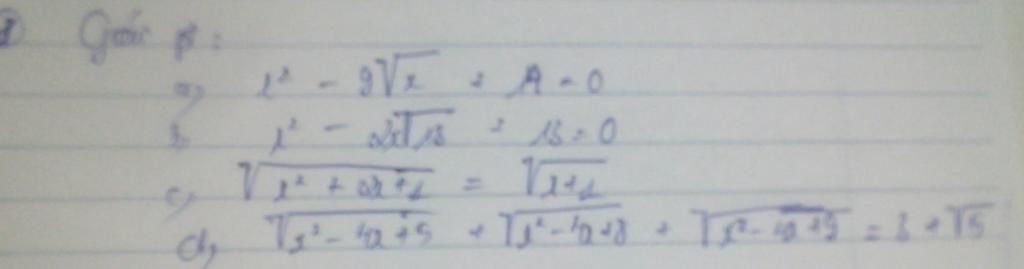 Giải pt:
a, x² - 9√x + 14 = 0
b, x² - 2x√13 + 13 = 0
c, √x² + 2x + 1 = √x + 1
d, √x² - 4x + 5 + √x² - 4x + 8 + √x² - 4x + 9 = 3 + √5